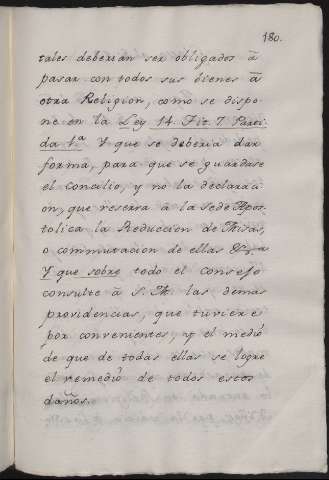 180.
tales deberian ser obligados â
pasar con todos sus bienes â
otra Religion, como se dispo-
ne en la Ley 14. Tit. 7. Parti-
da 1.ª Y que se deberia dar
forma, para que se guardase
el Concilio, y no la declaraci-
on, que reserva â la Sede Apos-
tolica la Reduccion de Misas,
o commutacion de ellas
Y que sobre todo el consejo
consulte â S. M. las demas
providencias, que tuviere
por convenientes, y el medio
de que de todas ellas se logre
el remedio de todos estos
daños.